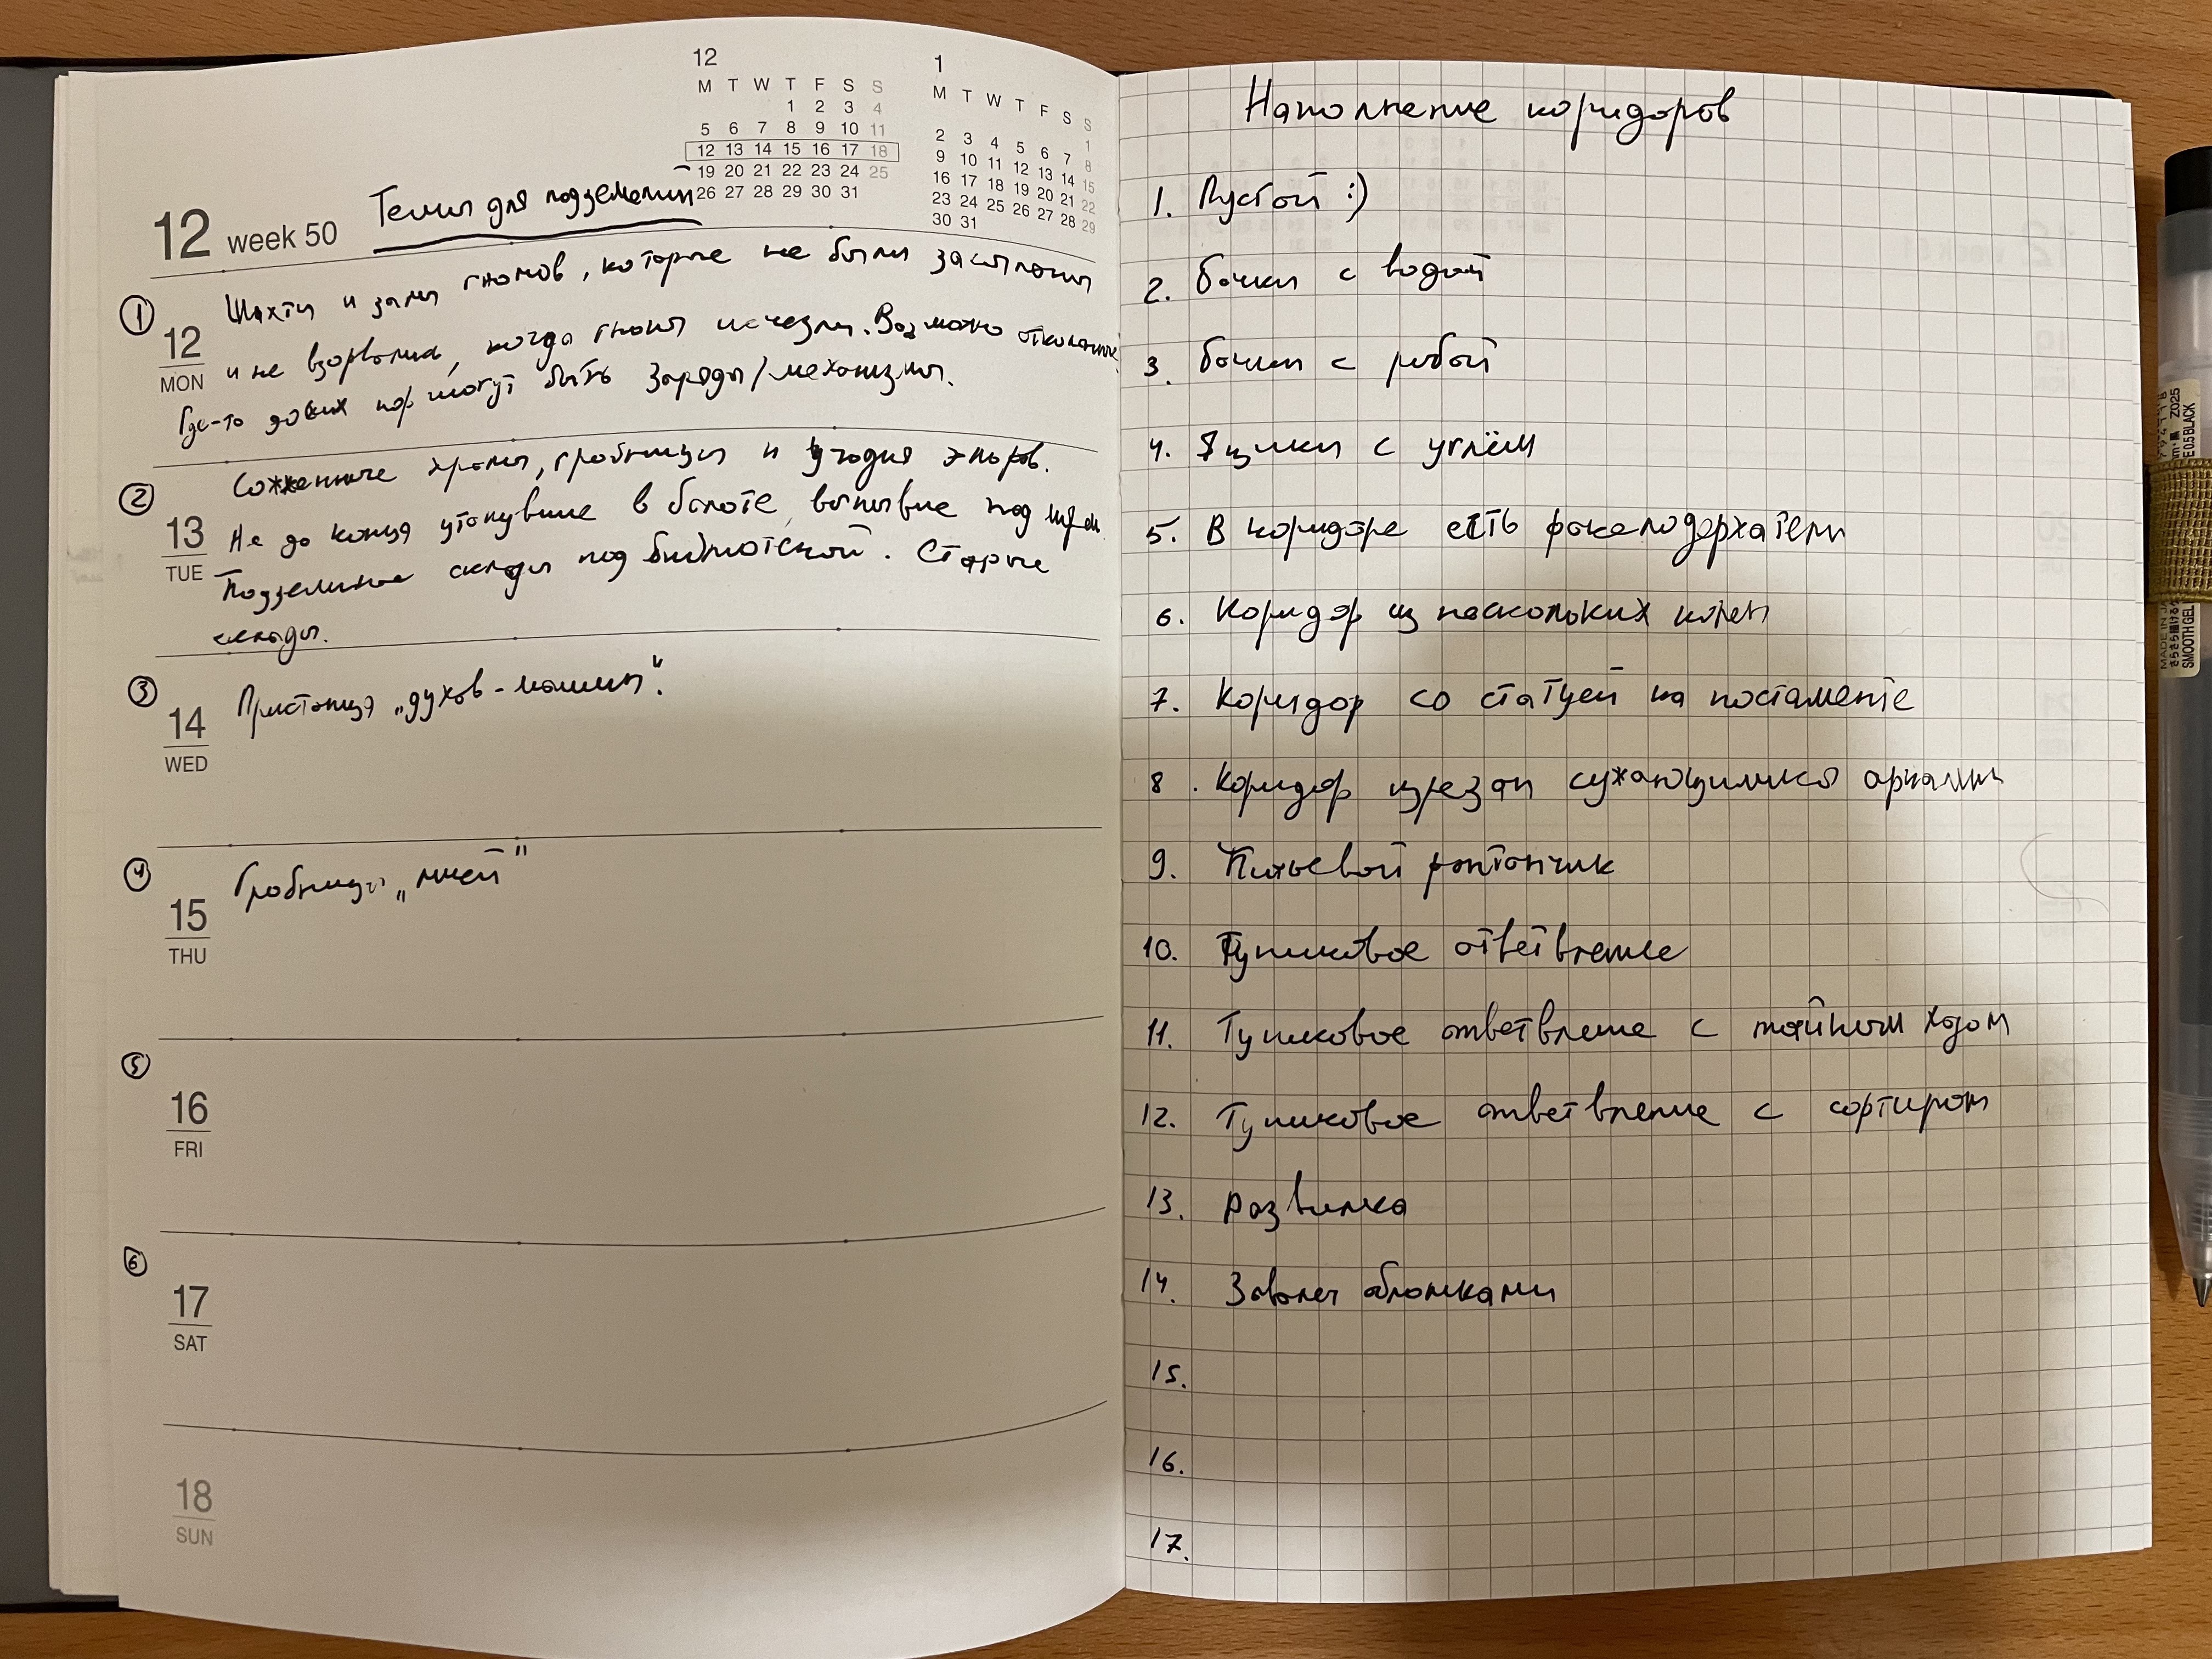 12
M T W T F S S
1 2 3 4
5 6 7 8 9 10 11
12 13 14 15 16 17 18
19 20 21 22 23 24 25
26 27 28 29 30 31
1
M T W T F S S
1
2 3 4 5 6 7 8
9 10 11 12 13 14 15
16 17 18 19 20 21 22
23 24 25 26 27 28 29
30 31
12 week 50
Темы для подземелий
① Шахты и залы гномов, которые не были засыпаны
12 MON
и не взорвались, когда гномы исчезли. Возможно
Где-то до сих пор могут быть заряды/механизмы.
② Сожженные храмы, гробницы и угодья эльфов.
13 TUE
Не до конца утонувшие в болоте, под
Подземные склады под библиотекой. Старые
склады.
③ Пристанища „духов-машин".
14 WED
④ Гробницы „личей"
15 THU
⑤
16 FRI
⑥
17 SAT
18 SUN
Наполнение коридоров
1. Пустой :)
2. Бочки с водой
3. Бочки с рыбой
4. Ящики с углём
5. В коридоре есть факелодержатели
6. Коридор из нескольких колен
7. Коридор со статуей на постаменте
8. Коридор изрезан сужающимися арками
9. Питьевой фонтанчик
10. Тупиковое ответвление
11. Тупиковое ответвление с тайным ходом
12. Тупиковое ответвление с сортиром
13. Развилка
14. Завален обломками
15.
16.
17.
Z025
0.5 BLACK
MADE IN JA
SMOOTH GEL